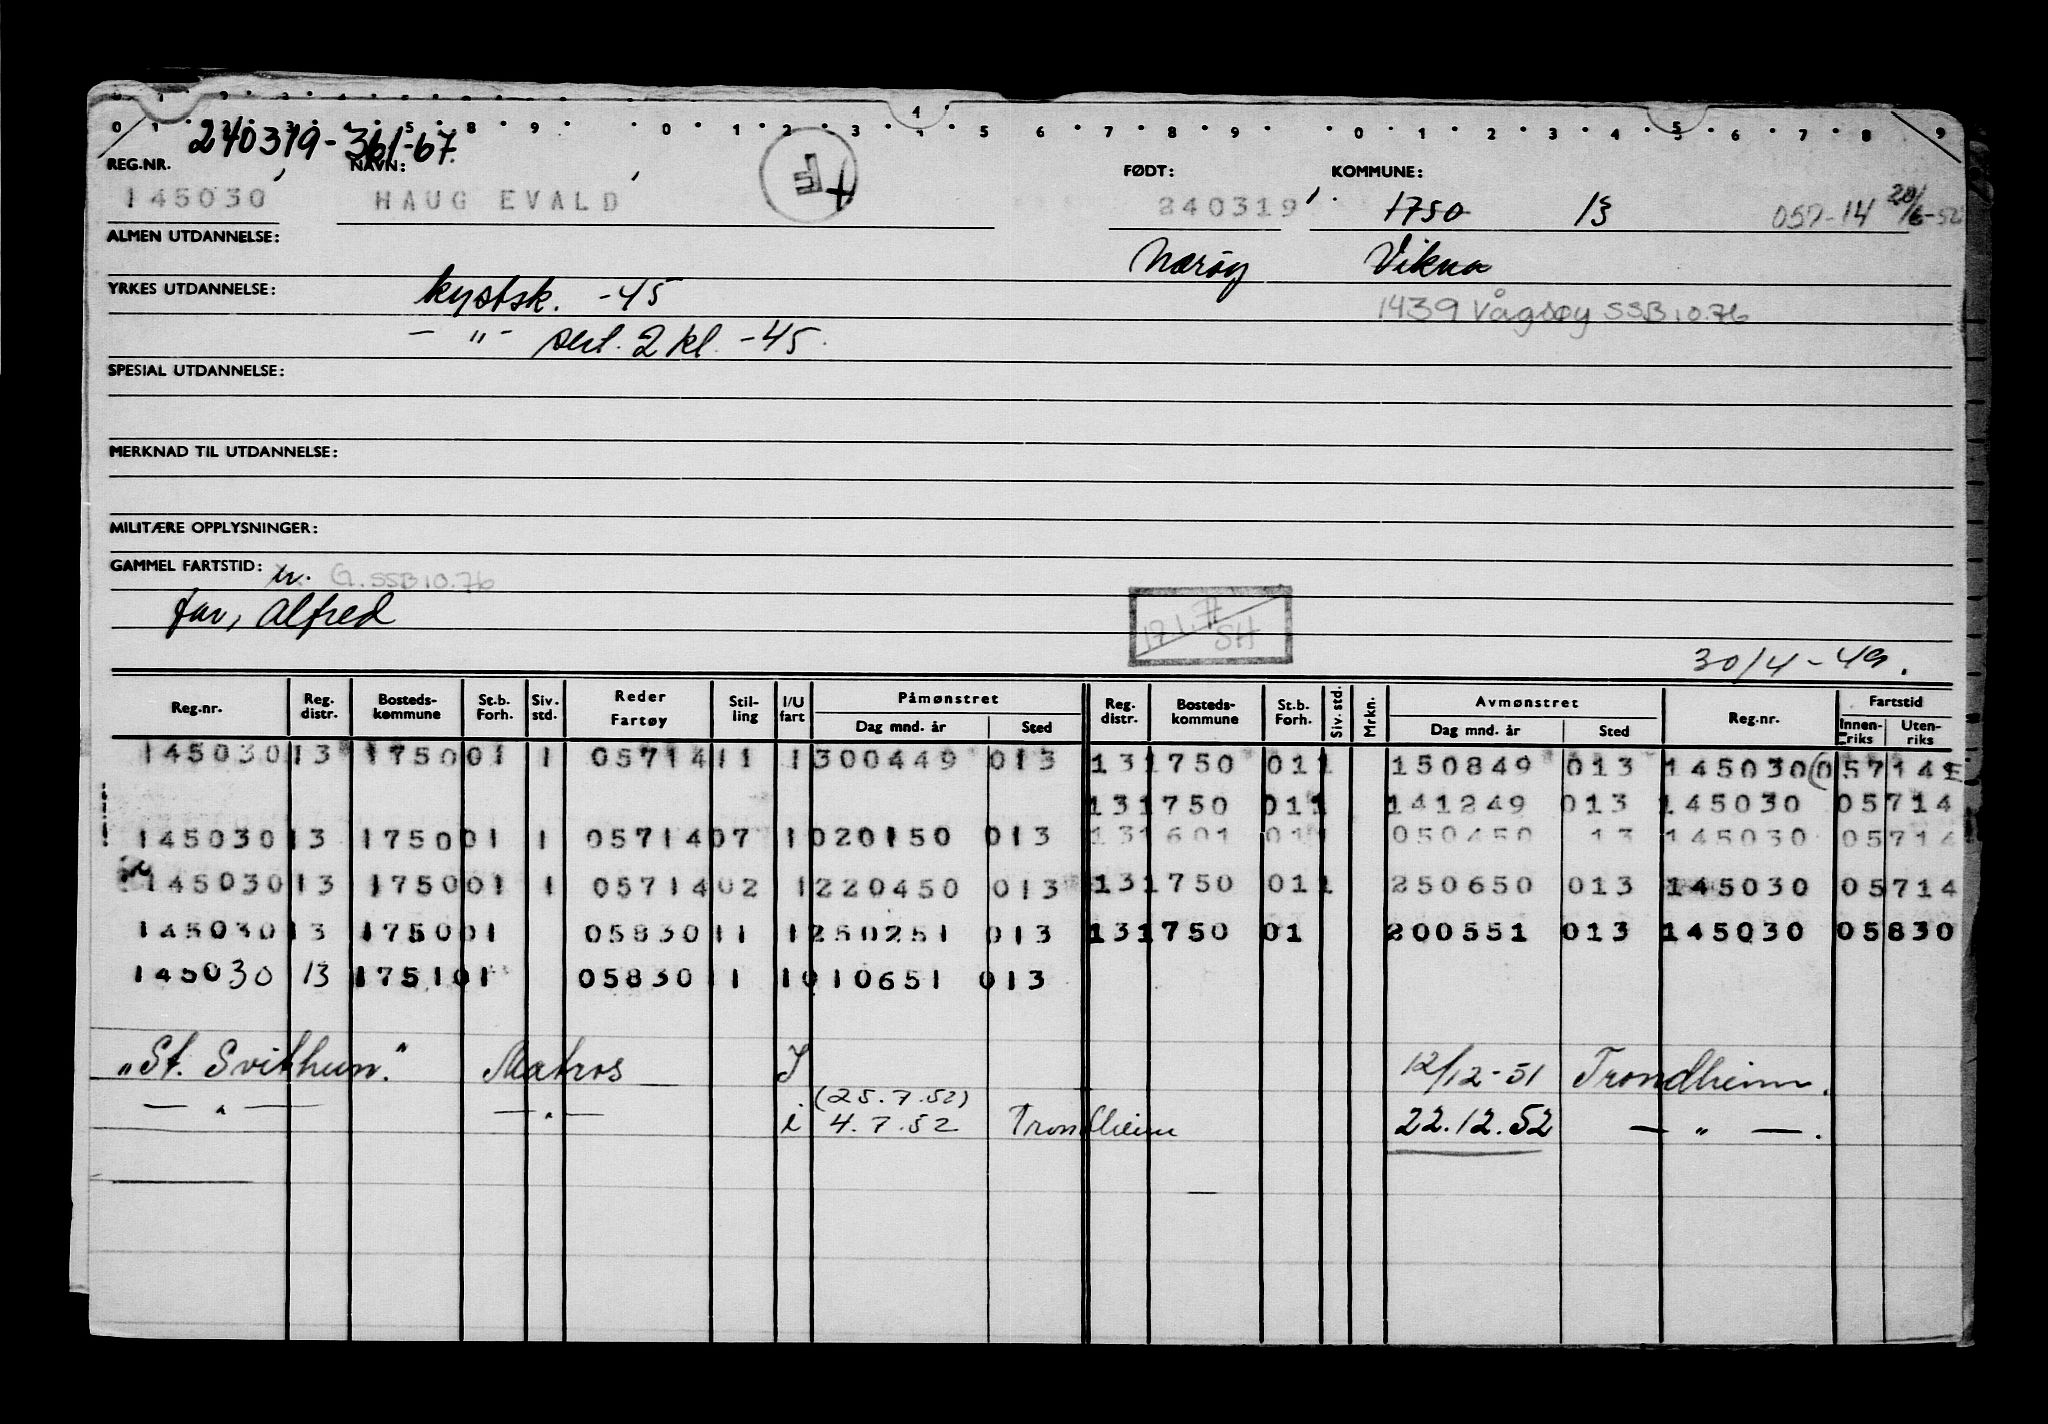 0 1 2 3 4 5 8 9 0 1 2 3 4 5 6 7 8 9 0 1 2 3 4 5 6 7 8 9
240319-361-67.
REG.NR. NAVN: FØDT: KOMMUNE:
145030 HAUG EVALD 240319 1750 13 057-14 20/6-52
ALMEN UTDANNELSE: Nærøy Vikna
YRKES UTDANNELSE: kystsk. -45 1439 Vågsøy SSB 10.76
— " — sert. 2 kl. -45.
SPESIAL UTDANNELSE:
MERKNAD TIL UTDANNELSE:
MILITÆRE OPPLYSNINGER:
GAMMEL FARTSTID: G. SSB 10.76
far, Alfred
17.1.77 SH
30/4-49.
Reg.nr. Reg. distr. Bosteds-kommune St.b. Forh. Siv. std. Reder Fartøy Stil-ling I/U fart Påmønstret Dag mnd. år Sted Reg. distr. Bosteds-kommune St.b. Forh. Siv. std. Mrkn. Avmønstret Dag mnd. år Sted Reg.nr. Fartstid Innen-riks Uten-riks
145030 13 1750 01 1 05714 11 1 300449 013 13 1750 01 1 150849 013 145030 (05714 E
13 1750 01 1 141249 013 145030 05714
145030 13 1750 01 1 05714 07 1 020150 013 13 1601 01 1 050450 13 145030 05714
145030 13 1750 01 1 05714 02 1 220450 013 13 1750 01 1 250650 013 145030 05714
145030 13 1750 01 05830 11 1 250251 013 13 1750 01 200551 013 145030 05830
145030 13 1751 01 05830 11 1 010651 013
"St. Svithun." Matros I 12/12-51 Trondheim.
(25.7.52)
— " — — " — i 4.7.52 Trondheim 22.12.52 — " — .